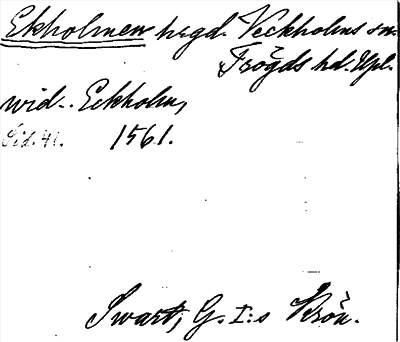 Ekholmen hrgd. Veckholms sn.
Trögds hd. Upl.
wid Eckholm,
Sid. 41. 1561.
Swart, G. I:s Krön.